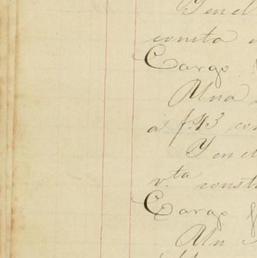 Y en el
consta
Cargo
Una
a f. 43 con
Y en el
v.ta const
Cargo f
Un